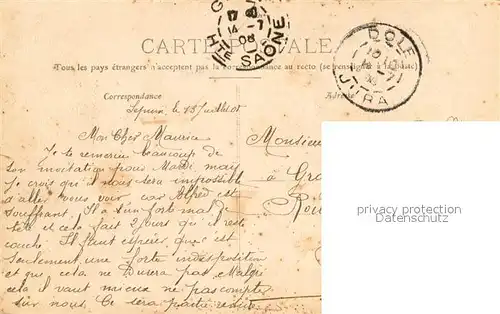 CARTE POSTALE
Tous les pays étrangers n'acceptent pas la correspondance au recto (se renseigner à la poste)
Correspondance
Adresse
17
14 -7
08
HTE SAONE
DOLE
JURA
le 13 Juillet
Mon Cher Maurice
Je te remercie beaucoup de
ton invitation pour Mardi mais
Je crois qu'il nous sera impossible
d'aller vous voir car Alfred est
souffrant. Il a un forte mal de
tête et cela fait 2 jours qu'il reste
couché. Il faut espérer que c'est
seulement une forte indisposition
et que cela ne Durera pas Malgré
cela il vaut mieux ne pas compter
sur nous. Ce sera partie remise
Monsieur
à
privacy protection
Oldthing.de